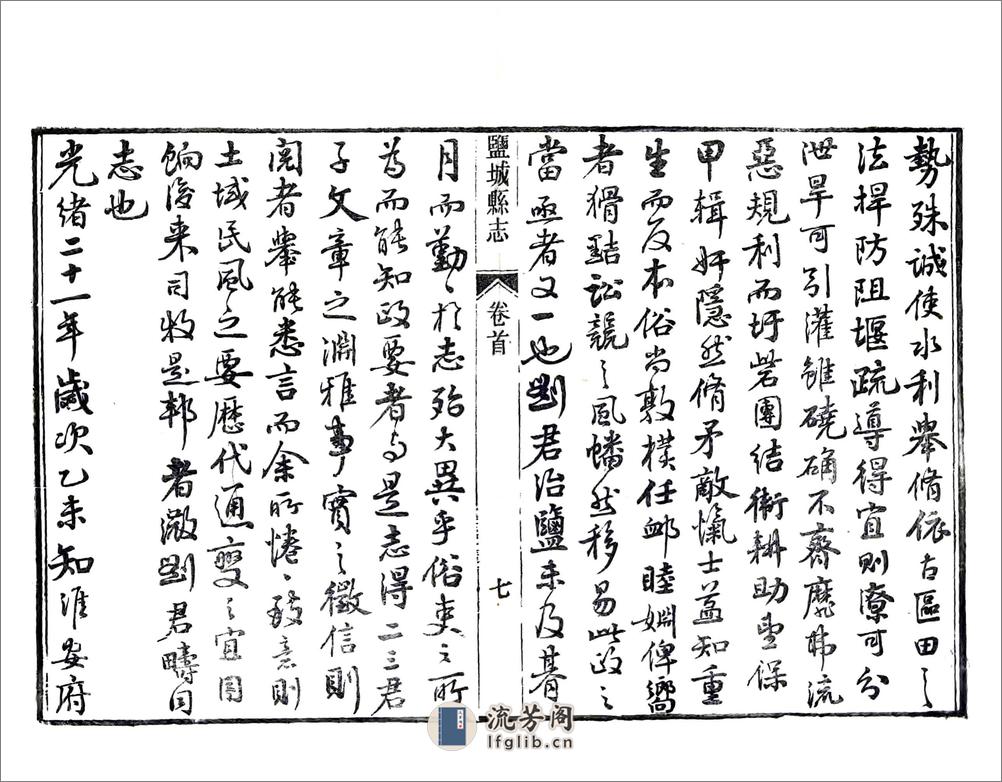 勢殊誠使水利舉脩依古區田之
法捍防阻堰疏導得宜則潦可分
泄旱可引灌雖磽确不齊靡弗流
惡規利而圩砦團結衛耕助望保
甲輯奸隱然脩矛敵愾士益知重
生而反本俗尚敦樸任卹睦婣俾嚮
者猾黠訟競之風幡然移易此政之
當亟者又一也劉君治鹽未及朞
鹽城縣志
卷首
七
月而勤〻於志殆大異乎俗吏之所
為而能知政要者與是志得二三君
子文章之淵雅事實之徵信則
閱者舉能悉言而余所惓〻致意則
土域民風之要歷代通變之宜因
餉後來司牧是邦者微劉君疇因
志也
光緒二十一年歲次乙未知淮安府
流芳阁
lfglib.cn